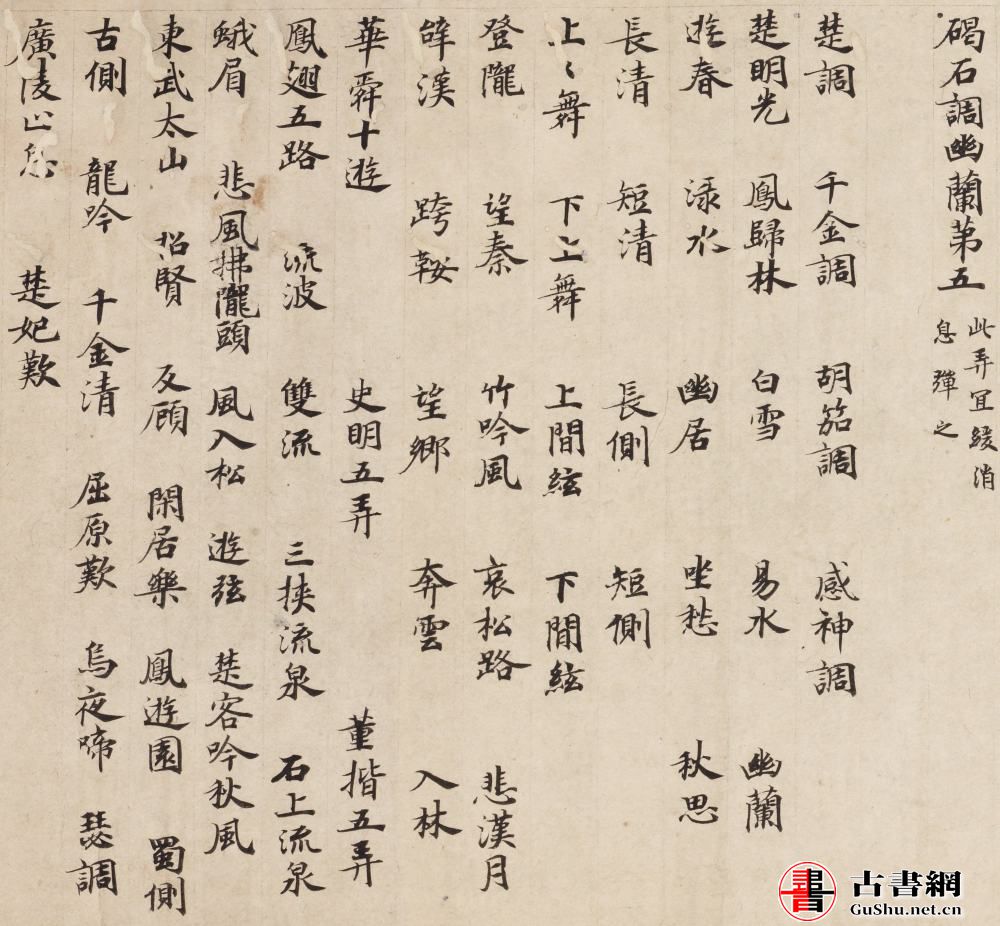 碣石調幽蘭第五 此弄宜緩消息彈之
楚調 千金調 胡笳調 感神調
楚明光 鳳歸林 白雪 易水 幽蘭
遊春 淥水 幽居 坐愁 秋思
長清 短清 長側 短側
上〻舞 下上舞 上間絃 下間絃
登隴 望秦 竹吟風 哀松路 悲漢月
辭漢 跨鞍 望鄉 奔雲 入林
華舜十遊 史明五弄 董揩五弄
鳳翅五路 流波 雙流 三挾流泉 石上流泉
蛾眉 悲風拂隴頭 風入松 遊弦 楚客吟秋風
東武太山 招賢 反顧 閑居樂 鳳遊園 蜀側
古側 龍吟 千金清 屈原歎 烏夜啼 瑟調
廣陵止息 楚妃歎
古書網
GuShu.net.cn